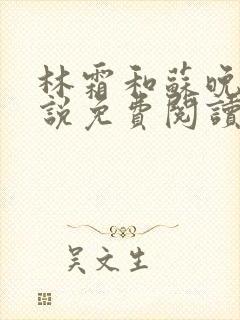 林霜和蘇晚
說免費閱讀
吴文生